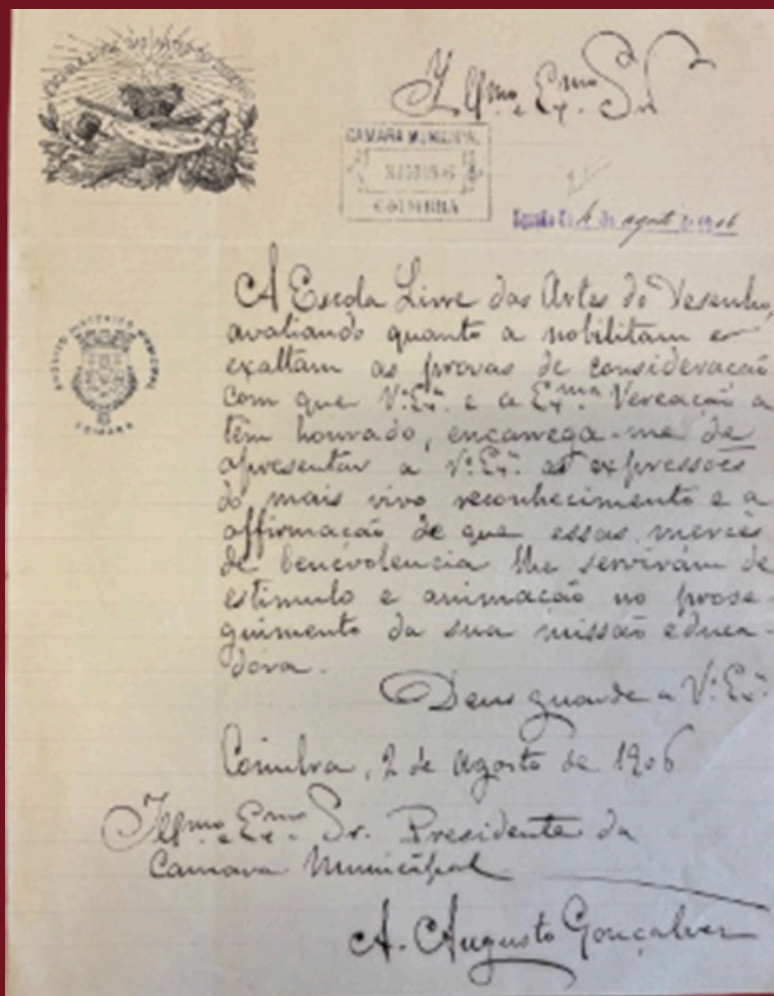 Ill.mo e Ex.mo Sr.
CAMARA MUNICIPAL
COIMBRA
Sessão de 4 de agosto de 1906
A Escola Livre das Artes do Desenho,
avaliando quanto a nobilitam e
exaltam as provas de consideração
com que V.ª Ex.ª e a Ex.ma Vereação a
têm honrado, encarrega-me de
apresentar a V.ª Ex.ª as expressões
do mais vivo reconhecimento e a
affirmação de que essas mercês
de benevolencia lhe servirám de
estimulo e animação no prose-
guimento da sua missão educa-
dora.
Deus guarde a V.ª Ex.ª
Coimbra, 2 de Agosto de 1906
Ill.mo e Ex.mo Sr. Presidente da
Camara Municipal
A. Augusto Gonçalves
ARQUIVO HISTÓRICO MUNICIPAL
COIMBRA